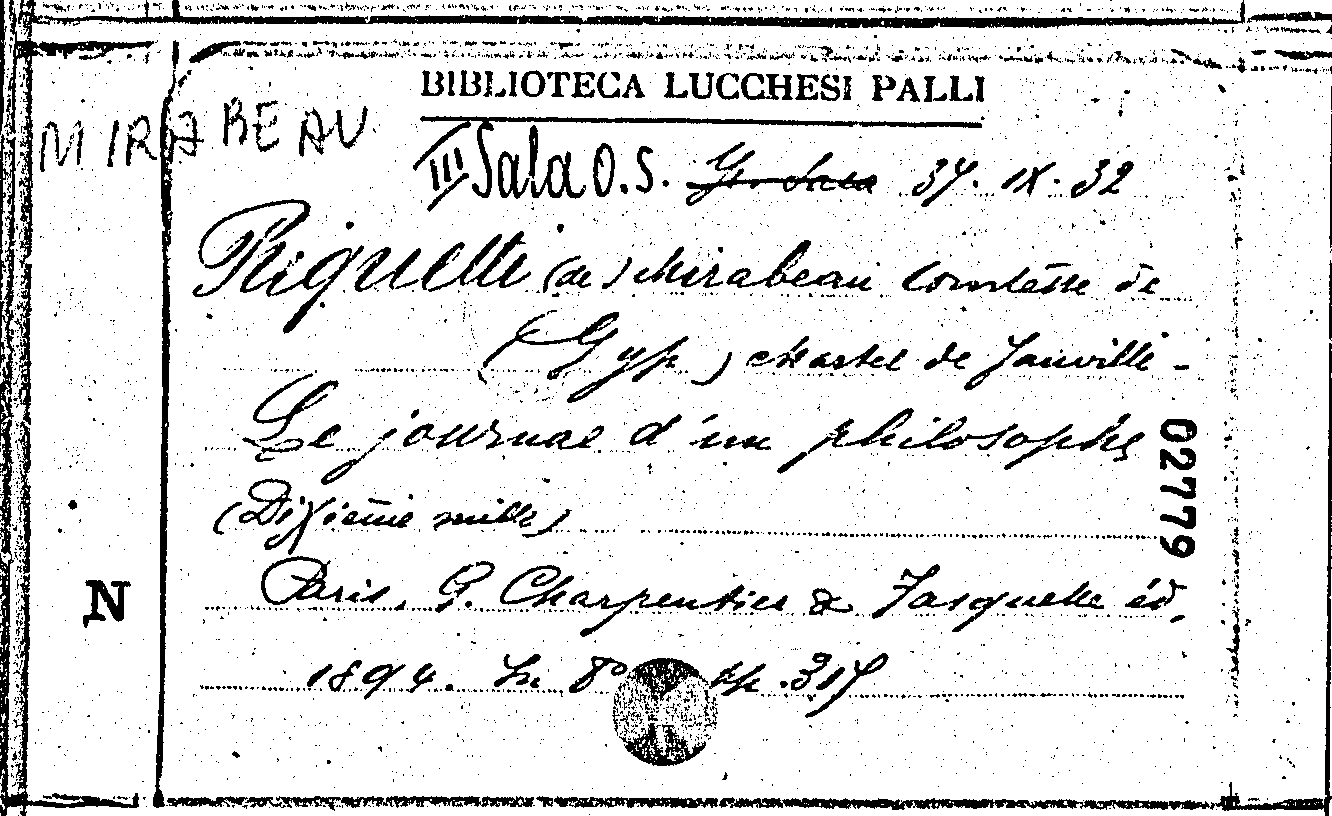 BIBLIOTECA LUCCHESI PALLI
MIRABEAU
III Sala O.S. 34. IX. 32
Riquetti (de) Mirabeau Comtesse de
(Gyp) Martel de Janville -
Le journal d'un philosophe
(Dixième mille)
02779
Paris, G. Charpentier & Fasquelle éd,
N
1894. In 8° pp. 317